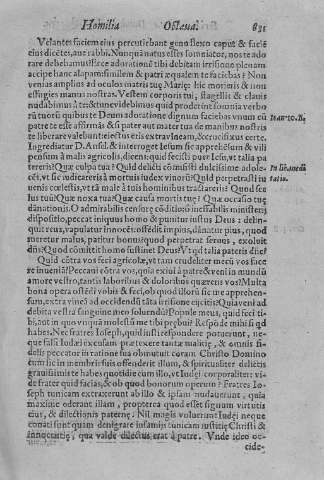 Homilia Octaua. 831
Velantes faciem eius percutiebant genu flexo caput & faciē
eius dicētes, aue rabbi. Nunquā natus esses somniator, note ado
rare debebamus? Ecce adorationē tibi debitam irrisione plenam
accipe hanc alapam similem & patri æqualem te faciebas? Non
venias amplius ad oculos matris tuę Marię: hic morieris & non
effugies manus nostras. Vestem corporis tui, flagellis & clauis
nudabimus à te: & tunc videbimus quid proderint somnia verbo
rū tuorū quibus te Deum adoratione dignum faciebas vnum cū
patre te esse affirmās & si pater aut mater tua de manibus nostris
te liberare valebunt: eiectus eris extra vineam, & crucifixus certe.
Ingrediatur D. Ansel. & interroget Iesum sic apprehēsum & vili
pensum à malis agricolis, dicens: quid fecisti puer Iesu, vt talia pa
tereris? Quæ culpa tua? Quid delicti cōmisisti dulcissime adole
cēt, vt sic iudicareris à mortis iudex viuorū? Quid perpetrasti iu
uenis cœlestis, vt tā male à tuis hominibus tractareris? Quod sce
lus tuū? Quæ noxa tua? Quæ causa mortis tuę? Quæ occasio tuę
dānationis. O admirabilis censurę cōditio & inefabilis ministerij
dispositio, peccat iniquus homo & punitur iustus Deus: delin-
quit reus, vapulatur innocēs: offēdit impius, dānatur pius, quod
meretur malus, patitur bonus: quod perpetrat seruus, exoluit
dn̄s: Quod cōmittit homo sustinet Deus? Vt qd talia pateris dn̄e?
Quid cōtra vos feci agricolę, vt tam crudeliter merū vos face
re inueniā? Peccaui cōtra vos, quia exiui à patre & veni in mundū
amore vestro, tantis laboribus & doloribus quærens vos? Multa
bona opera ostēdi vobis & feci, ob quod illorū sic me apprehen-
sum, extra vineā ad occidendū tāta irrisione eijcitis? Quia veni ad
debita vestra sanguine meo soluendū? Popule meus, quid feci ti-
bi, aut in quo vnquā molestū me tibi prębui? Respōde mihi si qd
habes. Nec fratres Ioseph, quid iusti respondere potuerunt, ne-
que falsi Iudæi excusam prætexere tantæ malicię, & omnis fi-
delis peccator in ratione sua obmutuit coram Christo Domino
cum sic in membris suis offenderit illum, & spiritualiter delictis
grauissimis te habes quotidie cum illo, vt Iudęi corporaliter: vi-
de frater quid facias, & ob quod bonorum operum? Fratres Io-
seph tunicam extraxerunt ab illo & ipsam nudauerunt, quia
maxime oderant illam, propterea quod esset signum virtutis
eius, & dilectionis paternę. Nil magis voluerunt Iudęi neque
conati sunt quam denigrare infamijs tunicam iustitię Christi &
innocentię, qua valde dilectus erat à patre. Vnde ideo oc-
cide-
Ioan 10. B.